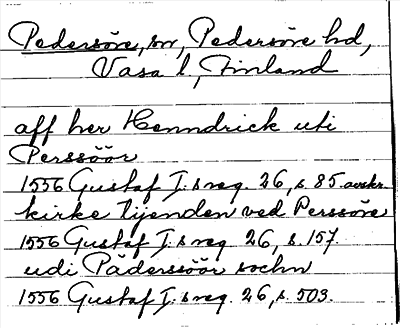 Pedersöre, sn, Pedersöre hd,
Vasa l, Finland
aff her Henndrick uti
Perssöör
1556 Gustaf I:s reg. 26, s. 85. avskr.
kirke tijenden ved Perssöre
1556 Gustaf I:s reg 26, s. 157.
udi Pädersöör sochn
1556 Gustaf I:s reg. 26, s. 503.